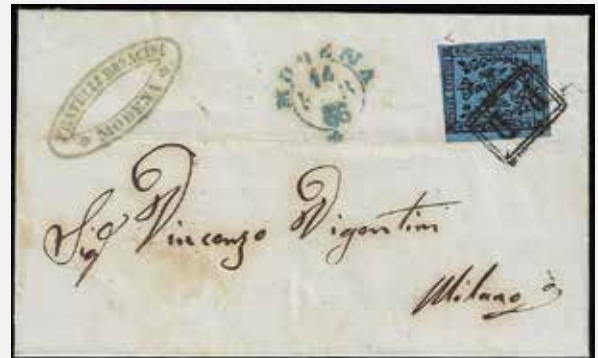 FRATELLI
MODENA
MODENA
14
Sig Vincenzo Vigentini
Milano